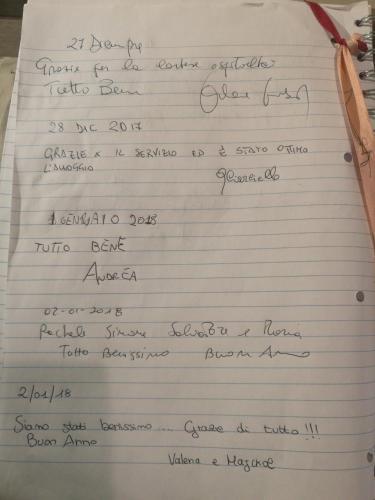 27 Dicembre
Grazie per la cortese ospitalità
Tutto Bene
28 DIC 2017
GRAZIE X IL SERVIZIO ED È STATO OTTIMO
L'ALLOGGIO
1 GENNAIO 2018
TUTTO BENE
ANDREA
02-01-2018
Rachele Simone Salvatore e Maria
Tutto Benissimo Buon Anno
2/01/18
Siamo stati benissimo... Grazie di tutto!!!
Buon Anno
Valeria e